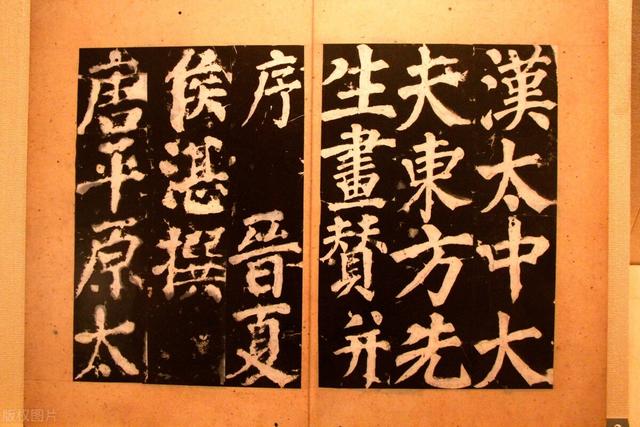 漢太中大
夫東方先
生畫贊并
序 晉夏
侯湛撰
唐平原太
版权图片